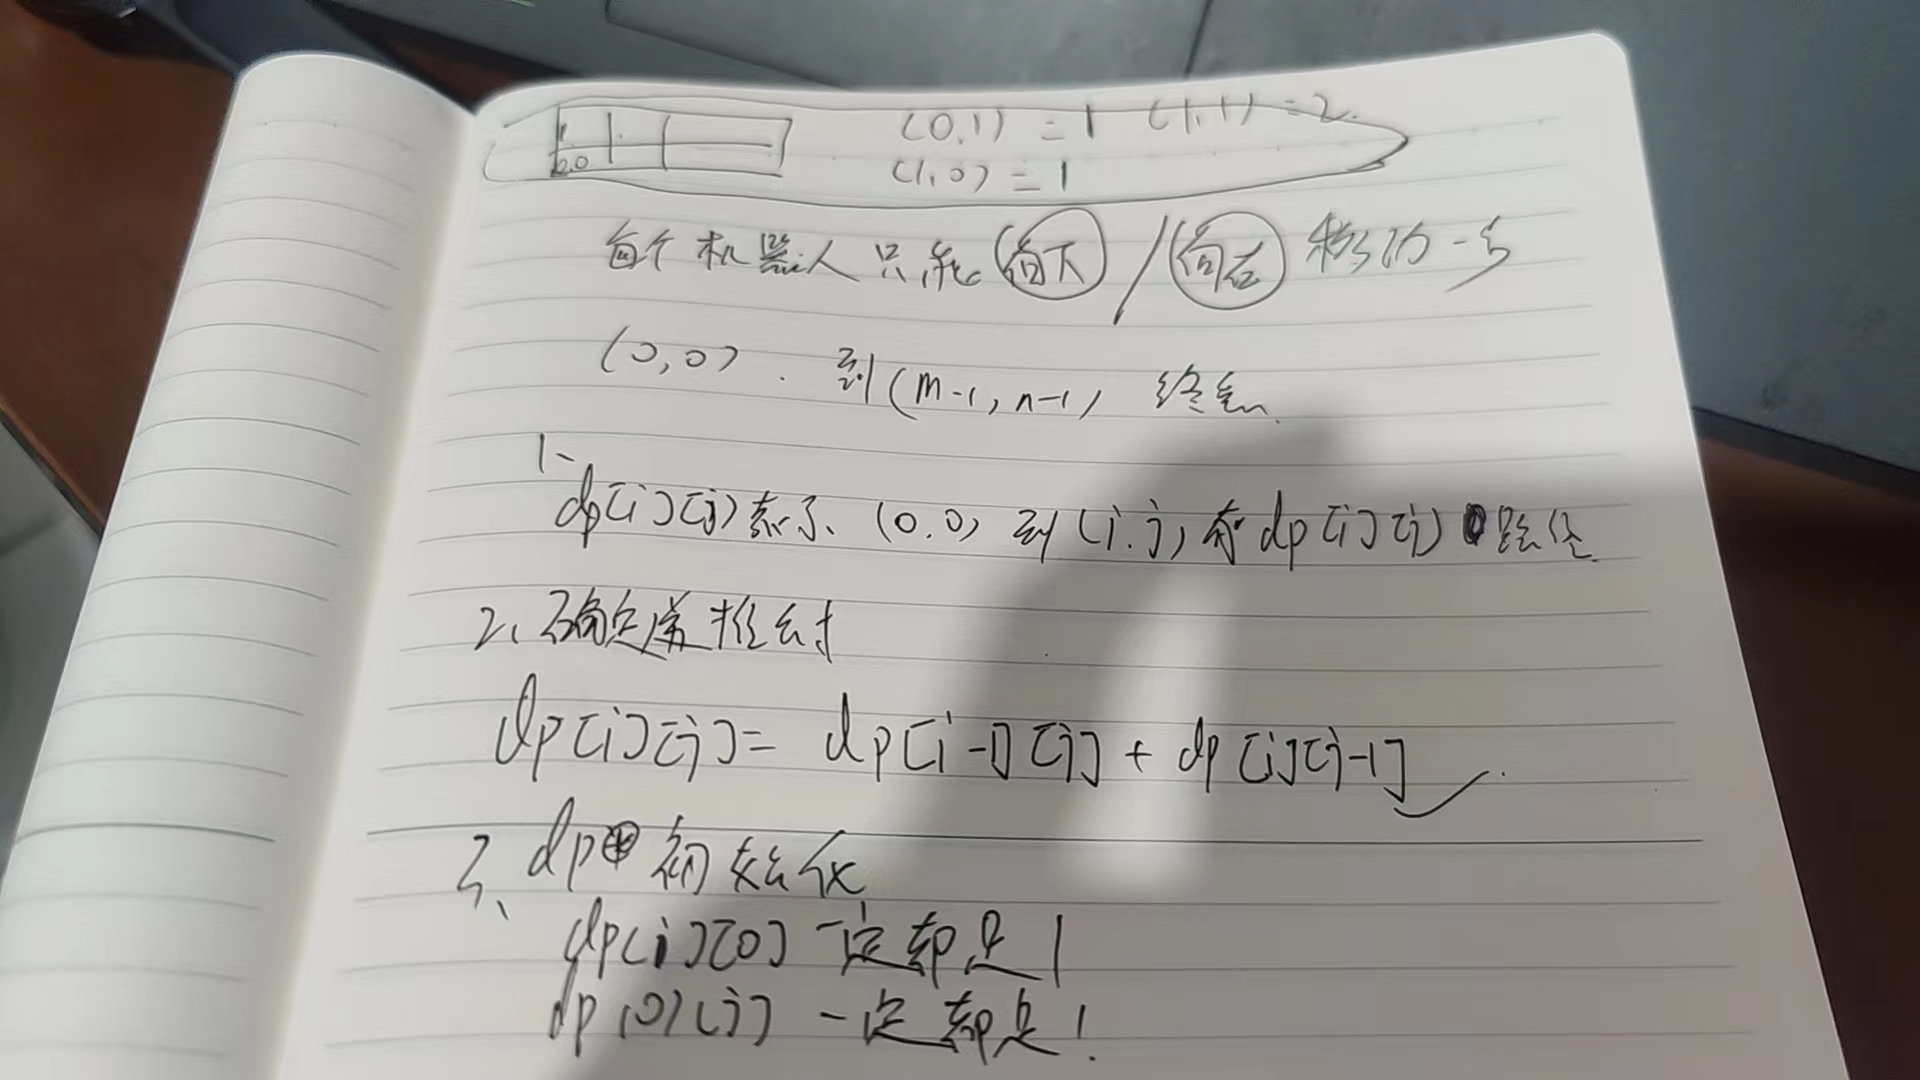 (0,1) = 1 (1,1) = 2.
0.0 (1,0) = 1
每个机器人只能向下/向右移动一步
(0,0). 到(m-1,n-1) 终点
1、
dp[i][j]表示、(0.0)到(i.j)有dp[i][j]路径
2、确定递推公式
dp[i][j]= dp[i-1][j] + dp[i][j-1]
3、dp初始化
dp[i][0]一定都是1
dp[0][j] 一定都是1.